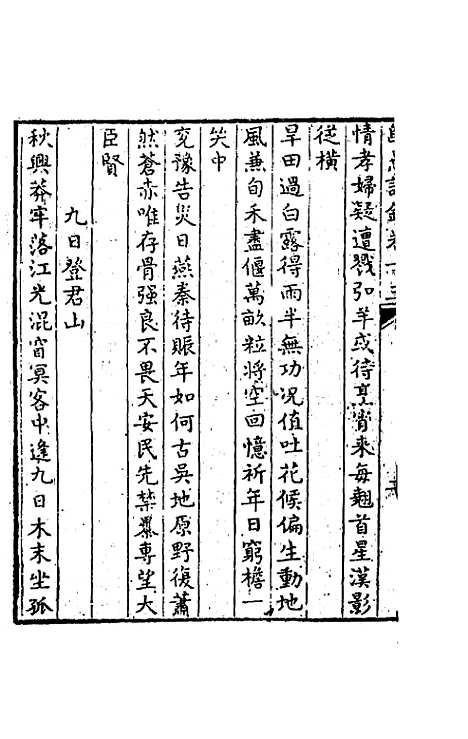 情孝婦疑遭戮弘羊或待烹宵来每翹首星漢影
從横
旱田過白露得雨半無功况值吐花候偏生動地
風兼旬禾盡偃萬畝粒将空回憶祈年日窮檐一
笑中
兖豫告災日燕秦待賑年如何古吳地原野復蕭
然蒼赤唯存骨强良不畏天安民先禁暴專望大
臣賢
九日登君山
秋興莽牢落江光混窅冥客中逢九日木末坐孤